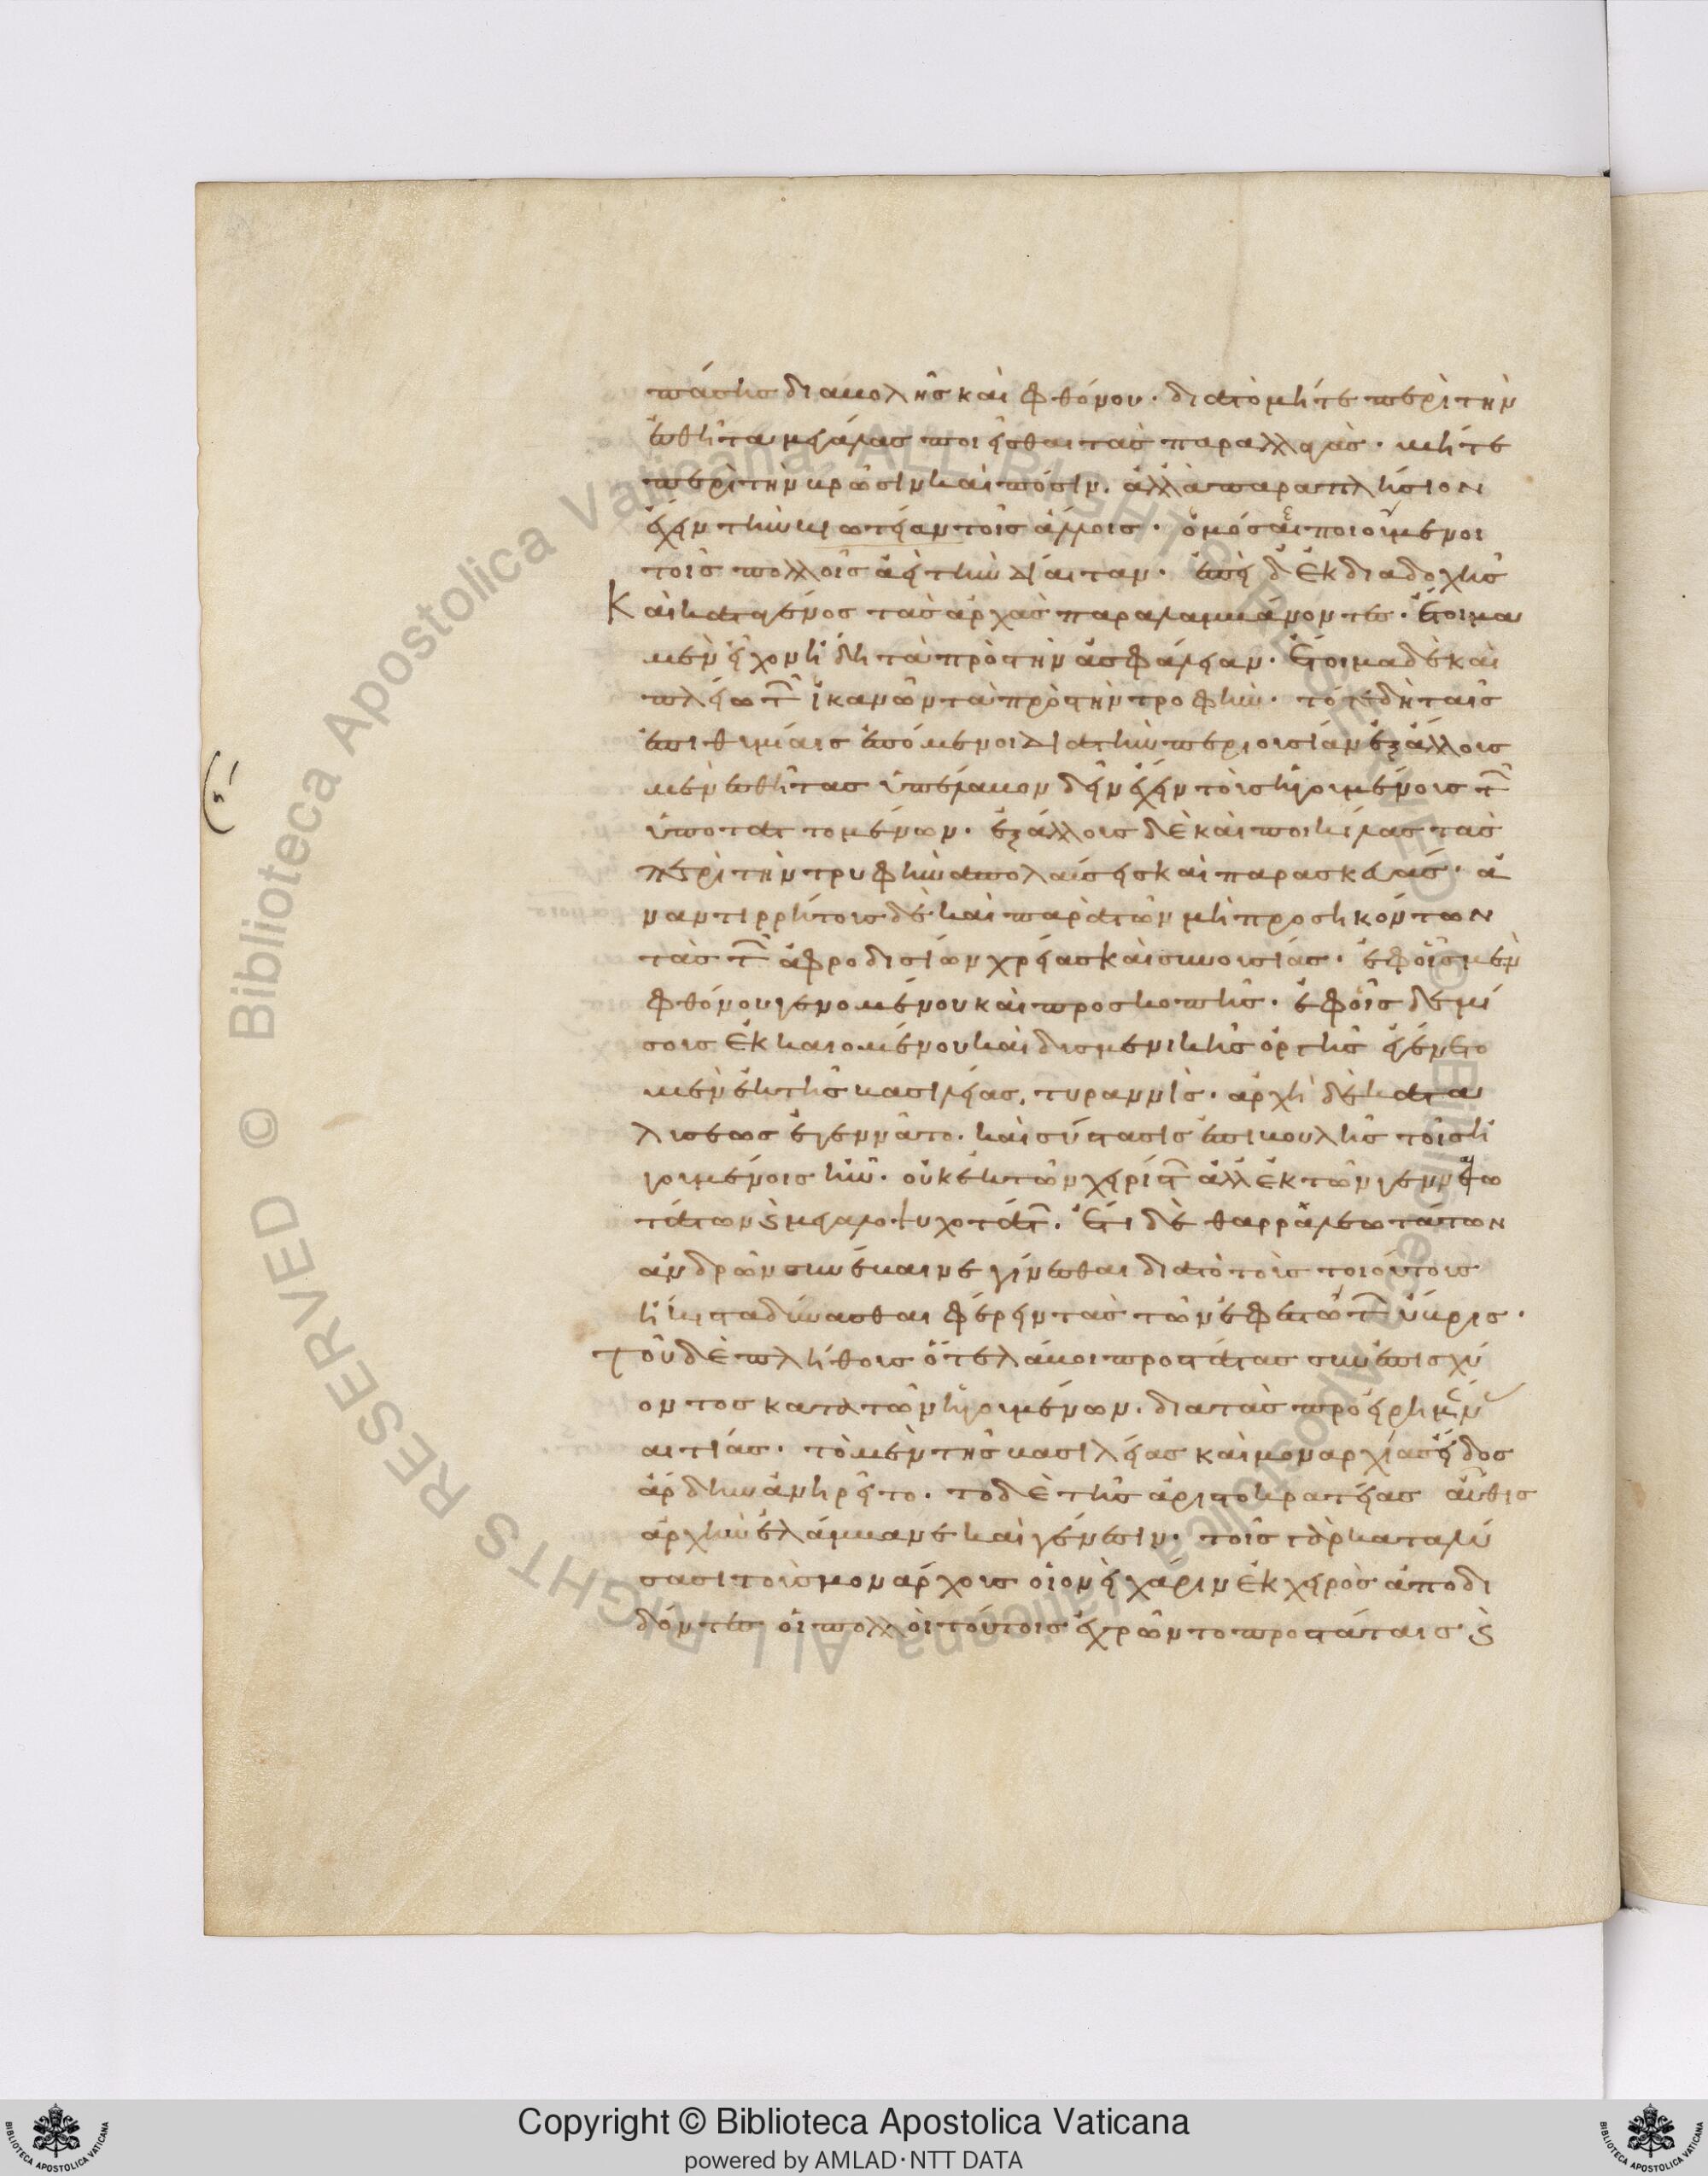 πάσης διαβολῆς καὶ φθόνου· διὰ τὸ μήτε περὶ τὴν
ἐσθῆτα μεγάλας ποιεῖσθαι τὰς παραλλαγὰς· μήτε
περὶ τὴν βρῶσιν καὶ πόσιν. ἀλλὰ παραπλήσιον
ἔχειν τὴν βιωτείαν τοῖς ἄλλοις· ὁμόσε ποιούμενοι
τοῖς πολλοῖς ἀεὶ τὴν δίαιταν· ἐπεὶ δ' ἐκ διαδοχῆς
Καὶ κατὰ γένος τὰς ἀρχὰς παραλαμβάνοντες· ἕτοιμα
μὲν εἶχον ἤδη τὰ πρὸ τὴν ἀσφάλειαν· ἕτοιμα δὲ καὶ
πλείω τῶν ἱκανῶν τὰ πρὸ τὴν τροφὴν· τότε δὴ ταῖς
ἐπιθυμίαις ἑπόμενοι διὰ τὴν περιουσίαν ἐξάλλους
μὲν ἐσθῆτας ὑπέλαβον δεῖν ἔχειν τοὺς ἡγουμένους τῶν
ὑποταττομένων. ἐξάλλους δὲ καὶ ποικίλας τὰς
περὶ τὴν τρυφὴν ἀπολαύσεις καὶ παρασκευάς· ἀ
ναντιρρήτους δὲ καὶ παρὰ τῶν μὴ προσηκόντων
τὰς τῶν ἀφροδισίων χρείας καὶ συνουσίας. ἐφ' οἷς μὲν
φθόνου γενομένου καὶ προσκοπῆς. ἐφ' οἷς δὲ μί
σους ἐκκαιομένου καὶ δυσμενικῆς ὀργῆς ἐγένετο
μὲν ἐκ τῆς βασιλείας, τυραννὶς· ἀρχὴ δὲ κατα
λύσεως ἐγεννᾶτο. καὶ σύστασις ἐπιβουλῆς τοῖς ἡ
γουμένοις ἣν. οὐκ ἐκ τῶν χειρίστων ἀλλ' ἐκ τῶν γενναιο
τάτων καὶ μεγαλοψυχοτάτων. ἔτι δὲ θαρραλεωτάτων
ἀνδρῶν συνέβαινε γίνεσθαι διὰ τὸ τοὺς τοιούτους
ἥκιστα δύνασθαι φέρειν τὰς τῶν ἐφεστώτων ὕβρεις·
Τοῦ δὲ πλήθους ὅτε λάβοι προστάτας συνεπισχύ
οντος κατὰ τῶν ἡγουμένων. διὰ τὰς προειρημένας
αἰτίας· τὸ μὲν τῆς βασιλείας καὶ μοναρχίας εἶδος
ἄρδην ἀνῃρεῖτο. τὸ δὲ τῆς ἀριστοκρατείας αὖθις
ἀρχὴν ἐλάμβανε καὶ γένεσιν. τοῖς γὰρ καταλύ
σασι τοὺς μονάρχους οἷον εἰ χάριν ἐκ χειρὸς ἀποδι
δόντες οἱ πολλοὶ τούτοις ἐχρῶντο προστάταις καὶ
Copyright © Biblioteca Apostolica Vaticana
powered by AMLAD·NTT DATA